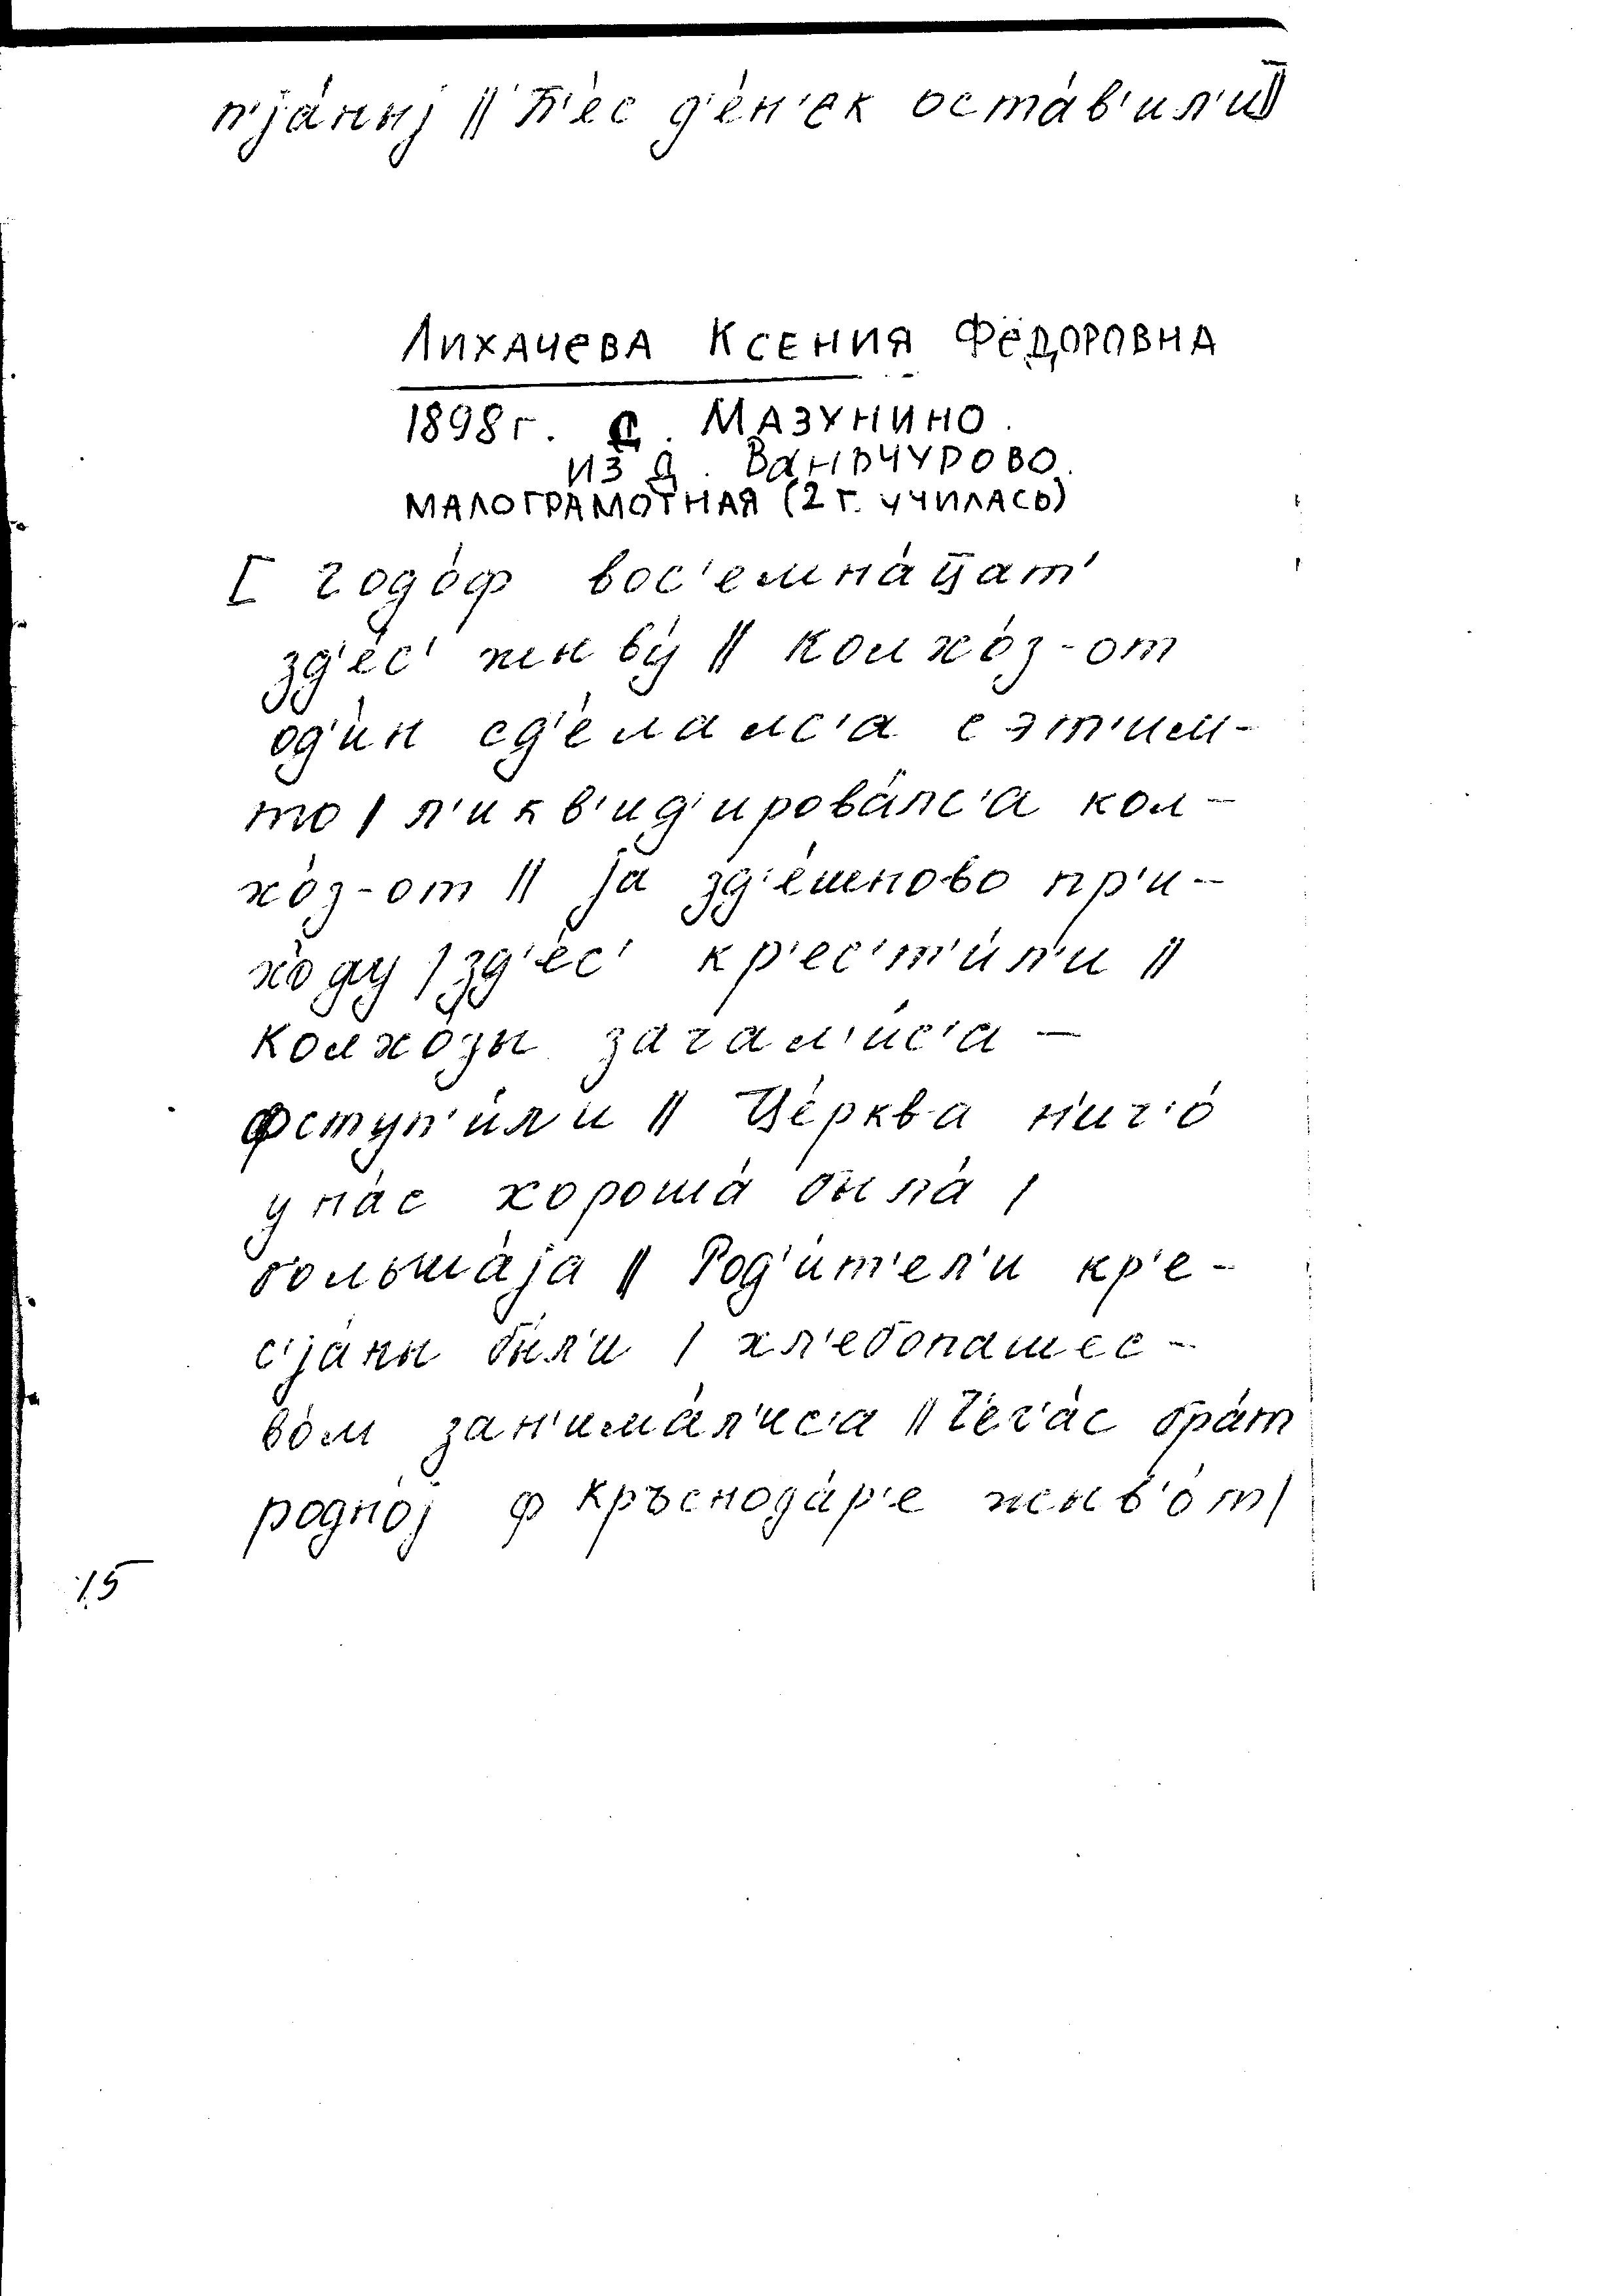 п'jа́ныj || Б'е́с д'е́н'ек оста́в'ил'и]
Лихачева Ксения Фёдоровна
1898г. с. Мазунино.
из д. Ванькчурово.
малограмотная (2 г. училась)
[ годо́ф вос'емна́ц̅ат'
зд'е́с' жыву́ || Колхо́з-от
од'и́н сд'е́лалс'а с эт'им-
то / л'икв'ид'ирова́лс'а кол-
хо́з-от || ja зд'е́шново пр'и-
хо́ду / зд'е́с' кр'ес'т'и́л'и ||
Колхо́зы зачал'и́с'а –
фступ'и́ли || Це́рква н'ич'о́
у на́с хороша́ была́ /
больша́ja || Род'и́т'ел'и кр'е-
с'jа́ны бы́л'и / хл'ебопашес-
во́м зан'има́л'ис'а || Ч'еч'а́с бра́т
родно́j ф Кръснода́р'е жыв'о́т /
15